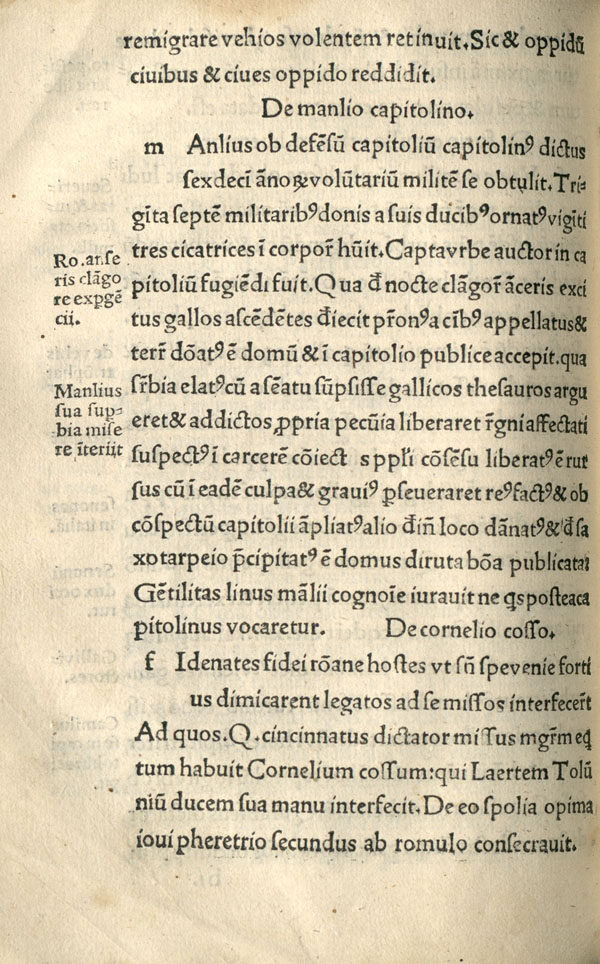 remigrare vehios volentem retinuit. Sic & oppidū
ciuibus & ciues oppido reddidit.
De manlio capitolino.
m Anlius ob defēsū capitoliū capitolinꝰ dictus
sexdeci ānoꝝ volūtariū militē se obtulit. Tri-
gīta septē militaribꝰ donis a suis ducibꝰ ornatꝰ vigīti
tres cicatrices ī corpor̄ hūit. Capta vrbe auctor in ca
pitoliū fugiēdi fuit. Qua đ nocte clāgor̄ āceris exci
tus gallos ascēdētes điecit pr̄onꝰ a cībꝰ appellatus &
terr̄ dōatꝰ ē domū & ī capitolio publice accepit. qua
sr̄bia elatꝰ cū a sēatu sūpsisse gallicos thesauros argu
eret & addictos ꝓpria pecūia liberaret r̄gni affectati
suspectꝰ ī carcerē cōiect s ppłi cōsēsu liberatꝰ ē rur
sus cū ī eadē culpa & grauiꝰ ꝑseueraret reꝰ factꝰ & ob
cōspectū capitolii āpliatꝰ alio đin̄ loco dānatꝰ & đ sa
xo tarpeio p̄cipitatꝰ ē domus diruta bōa publicata
Gētilitas linus māłii cognoīe iurauit ne qs postea ca
pitolinus vocaretur. De cornelio cosso.
f Idenates fidei rōane hostes vt sū spe venie forti
us dimicarent legatos ad se missos interfecer̄t
Ad quos. Q. cincinnatus dictator missus mgr̄m eq
tum habuit Cornelium cossum: qui Laertem Tolū
niū ducem sua manu interfecit. De eo spolia opima
ioui pheretrio secundus ab romulo consecrauit.
Ro. ar. se
ris clāgo
re expgē
cii.
Manlius
sua sup-
bia mise
re īteriit